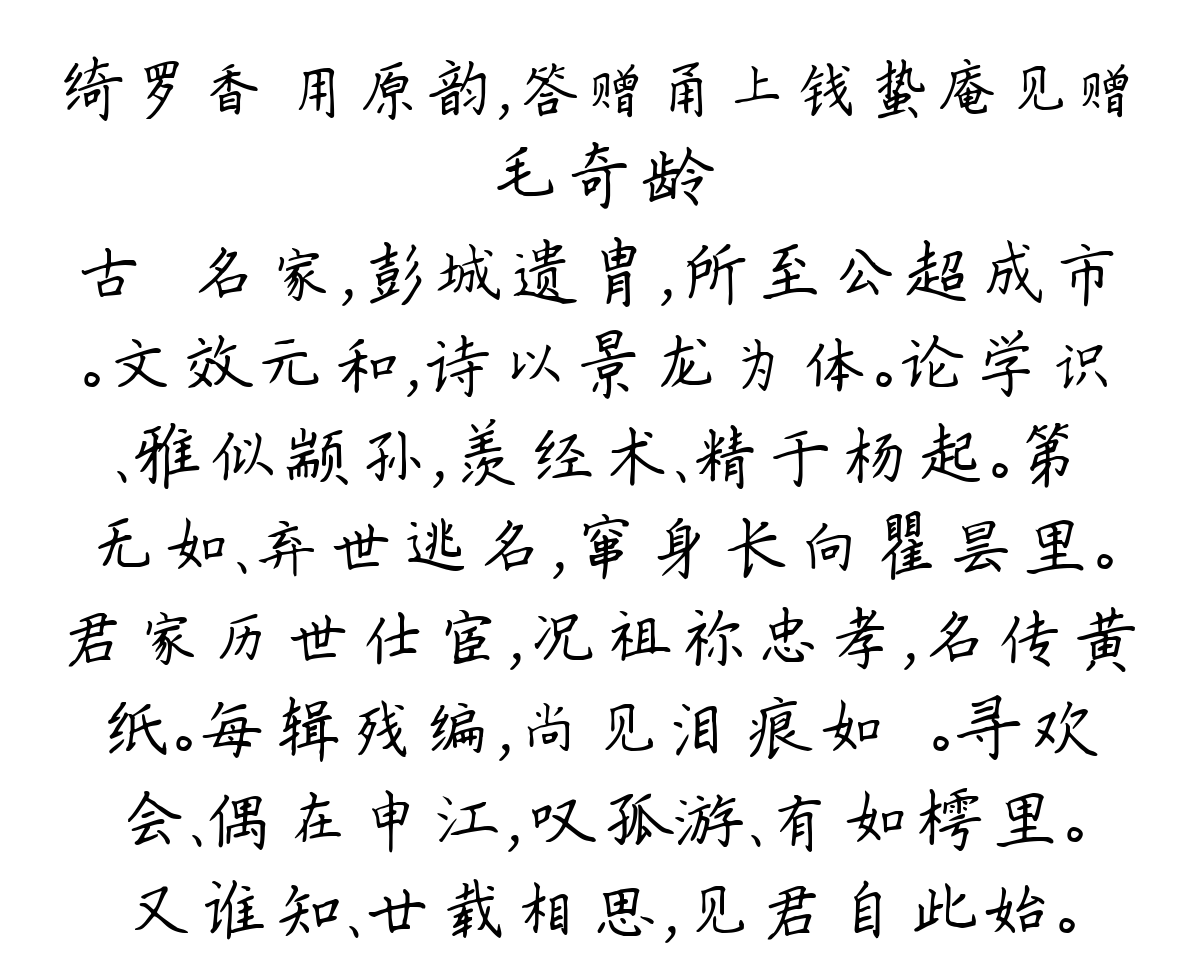 绮罗香 用原韵,答赠甬上钱蛰庵见赠
毛奇龄
古 名家,彭城遗胄,所至公超成市
。文效元和,诗以景龙为体。论学识
、雅似颛孙,羡经术、精于杨起。第
无如、弃世逃名,窜身长向瞿昙里。
君家历世仕宦,况祖祢忠孝,名传黄
纸。每辑残编,尚见泪痕如 。寻欢
会、偶在申江,叹孤游、有如樗里。
又谁知、廿载相思,见君自此始。